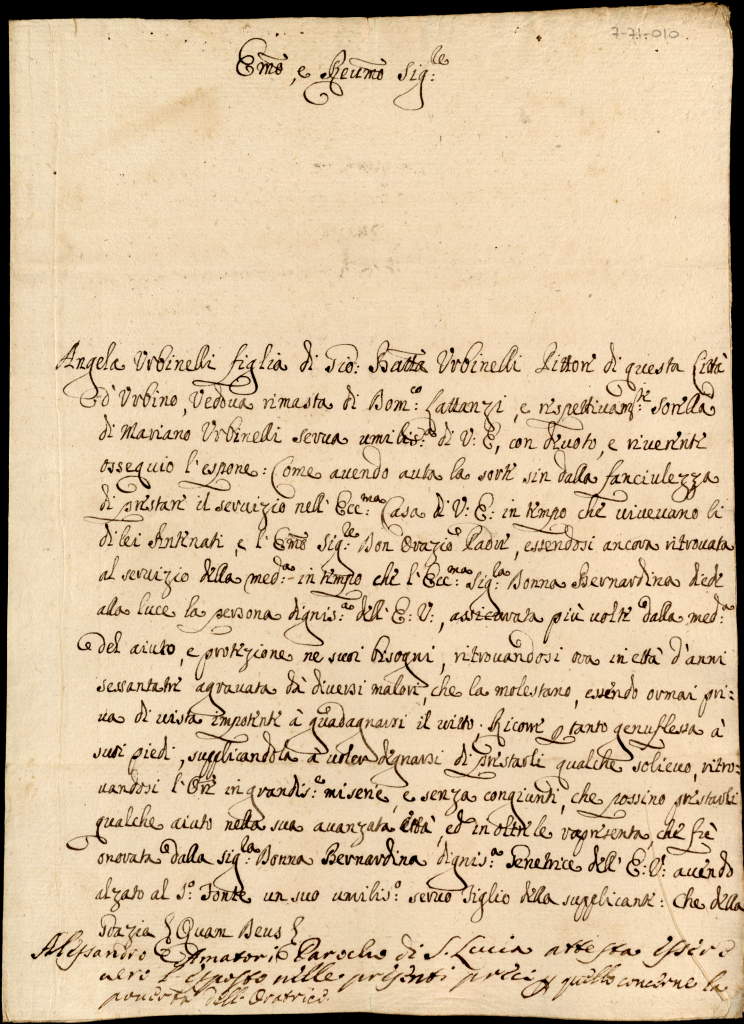 7-71-010
Emo, e Reumo Sig:re
Angela Urbinelli figlia di Gio: Batta Urbinelli Pittore di questa Città
d'Urbino, Vedova rimasta di Dom:co Lattanzi, e rispettivam:te sorella
di Mariano Urbinelli serva umilis:ma di V: E, con divoto, e riverente
ossequio l'espone: Come avendo auta la sorte sin dalla fanciulezza
di prestare il servizio nell'Ecc:ma Casa di V: E: in tempo che vivevano li
di lei Antenati, e l'Emo Sig:re Don Orazio Padre, essendosi ancora ritrovata
al servizio della med:a in tempo che l'Ecc:ma Sig:ra Donna Bernardina diede
alla luce la persona dignis:ma dell'E: V:, assicurata più volte dalla med:a
del aiuto, e protezione ne suoi bisogni, ritrovandosi ora in età d'anni
sessantatre agravata da diversi malori, che la molestano, essendo ormai pri-
va di vista impotente à guadagnarsi il vitto. Ricorre p tanto genuflessa à
suoi piedi, supplicandola à voler degnarsi di prestarli qualche solievo, ritro-
vandosi l'Ore in grandis:ma miserie, e senza congiunti, che possino prestarli
qualche aiuto nella sua avanzata età, ed in oltre le rapresenta, che fù
onorata dalla sig:ra Donna Bernardina dignis:ma Genetrice dell'E: V: avendo
alzato al S:o Fonte un suo umilis:o servo Figlio della supplicante: Che della
Grazia { Quam Deus {
Alessandro Amatori Parocho di S. Lucia attesta essere
vero l'esposto nelle presenti preci p quello concerne la
povertà dell'Oratrice.